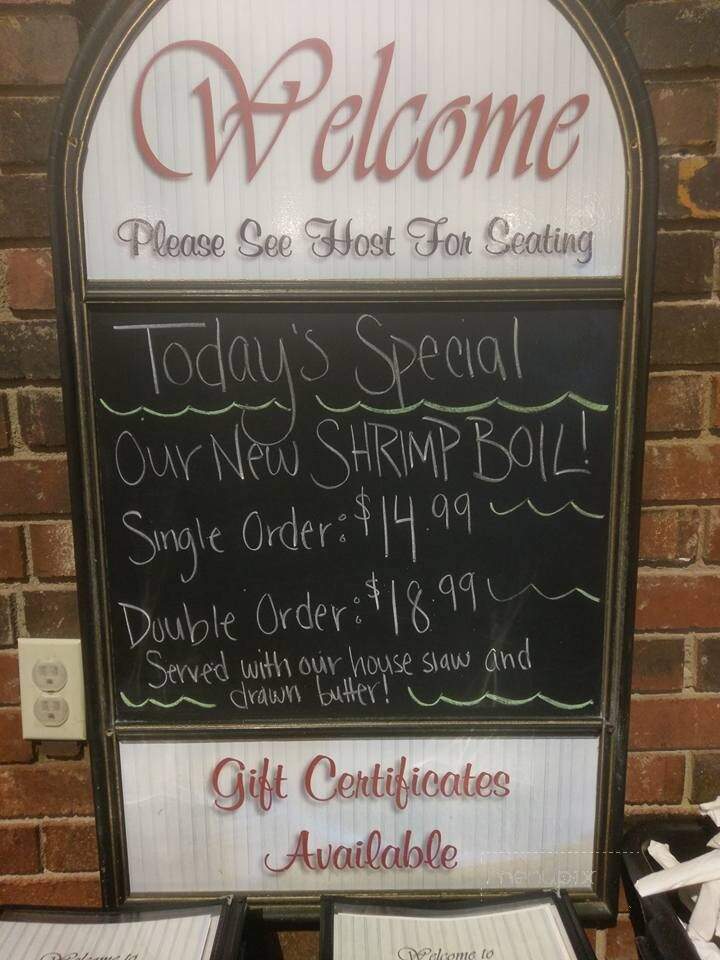 Welcome
Please See Host For Seating
Today's Special
Our New SHRIMP BOIL!
Single Order: $14.99
Double Order: $18.99
Served with our house slaw and
drawn butter!
Gift Certificates
Available
menupix
Welcome to
Welcome to